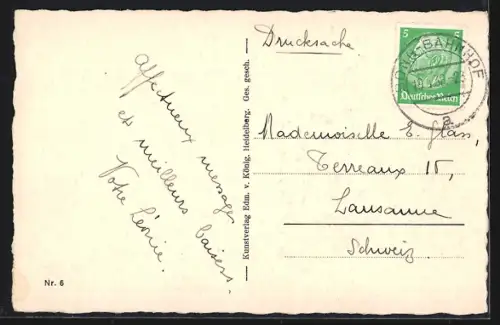 Drucksache
5 5
Deutsches Reich
BAHNHOF
a
Affectueux messages
et meilleurs baisers.
Votre Léonie.
Kunstverlag Edm. v. König, Heidelberg. Ges. gesch.
Mademoiselle E. Glass,
Terreaux 15,
Lausanne
Schweiz
Nr. 6